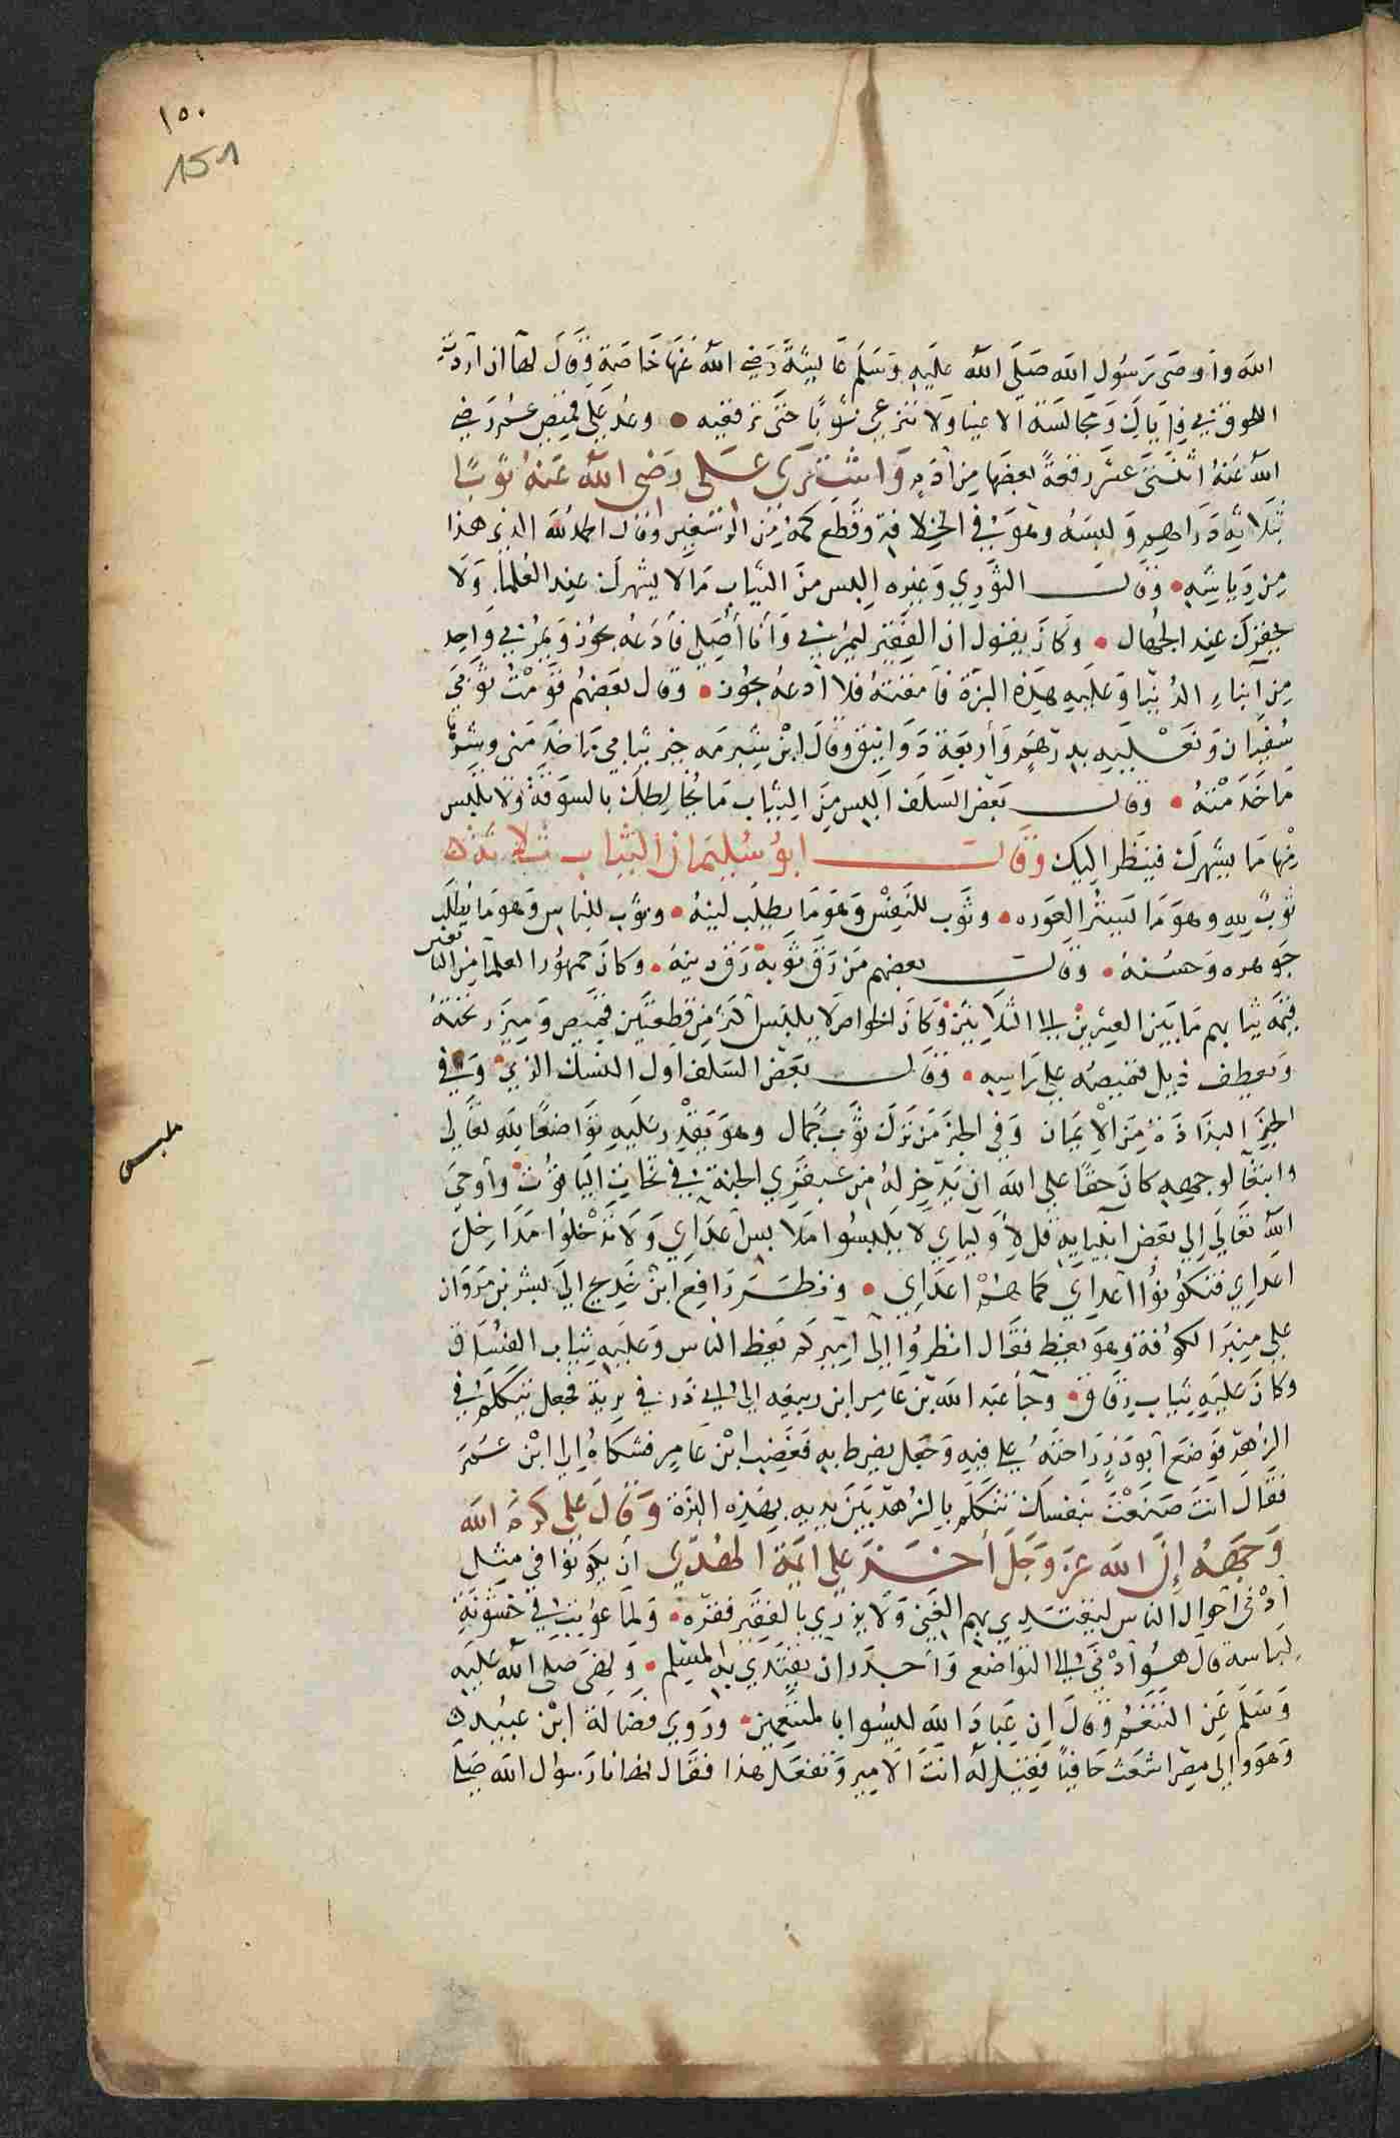 ١٥٠
151
الله وأوصى رسول الله صلى الله عليه وسلم عايشة رضي الله عنها خاصة وقال لها ان اردت
اللحوق بي فاياك ومجالسة الاغنيا ولا تنزعي ثوبا حتى ترقعيه • وعد على قميص عمر رضي
الله عنه اثنتى عشر رقعة بعضها من أدم واشترى على رضي الله عنه ثوبا
بثلاثه دراهم ولبسه وهو في الخلافة وقطع كمه من الرسغين وقال الحمد لله الذي هذا
من رياشه • وقال الثوري وغيره البس من الثياب ما لا يشهرك عند العلما ولا
يحقرك عند الجهال • وكان يقول ان الفقير ليمر بي وأنا أصلي فأدعه يجوز ويمر بي واحد
من أبناء الدنيا وعليه هذه البزة فأمقته فلا أدعه يجوز • وقال بعضهم قومت ثوبي
سفيان ونعليه بدرهم وأربعة دوانيق وقال ابن شبرمه خير ثيابي ما خدمني وشرها
ما خدمته • وقال بعض السلف البس من الثياب ما يخالطك بالسوقة ولا تلبس
منها ما يشهرك فينظر اليك وقال ابو سليمان الثياب ثلاثة
ثوب لله وهو ما يستر العوره • وثوب للنفس وهو ما يطلب لينه • وثوب للناس وهو ما يطلب
جوهره وحسنه • وقال بعضهم من رق ثوبه رق دينه • وكان جمهور العلما من التابعين
قيمة ثيابهم ما بين العشرين الى الثلاثين وكان الخواص لا يلبس اكثر من قطعتين قميص وميزر تحته
ويعطف ذيل قميصه على راسه • وقال بعض السلف اول النسك الزي وفي
الخبر البذاذة من الإيمان وفي الخبر من ترك ثوب جمال وهو يقدر عليه تواضعا لله تعالى
وابتغا لوجهه كان حقا على الله ان يدخر له من عبقري الجنة في تخات الياقوت وأوحى
الله تعالى إلى بعض انبيايه قل لأوليايي لا يلبسوا ملابس أعداي ولا تدخلوا مداخل
اعداي فتكونوا أعداي كما هم اعداي • ونظر رافع ابن خديج الى بشر بن مروان
على منبر الكوفة وهو يعظ فقال انظروا إلى اميركم يعظ الناس وعليه ثياب الفساق
وكان عليه ثياب رقاق • وجا عبد الله بن عامر ابن ربيعه الى ابي ذر في بزته فجعل يتكلم في
الزهد فوضع أبو ذر راحته على فيه وجعل يضرط به فغضب ابن عامر فشكاه إلى ابن عمر
فقال انت صنعت بنفسك تتكلم بالزهد بين يديه بهذه البزة وقال على كرم الله
وجهه إن الله عز وجل أخذ على ايمة الهدى أن يكونوا في مثل
أدنى أحوال الناس ليقتدي بهم الغني ولا يزري بالفقير فقره • ولما عوتب في خشونة
لباسه قال هو أدنى الى التواضع وأجدر ان يقتدي به المسلم • ونهى صلى الله عليه
وسلم عن التنعم وقال إن عباد الله ليسوا بالمتنعمين • وروي فضالة ابن عبيد
وهو والى مصر اشعث حافيا فقيل له انت الامير وتفعل هذا فقال نهانا رسول الله صلى
ملبس